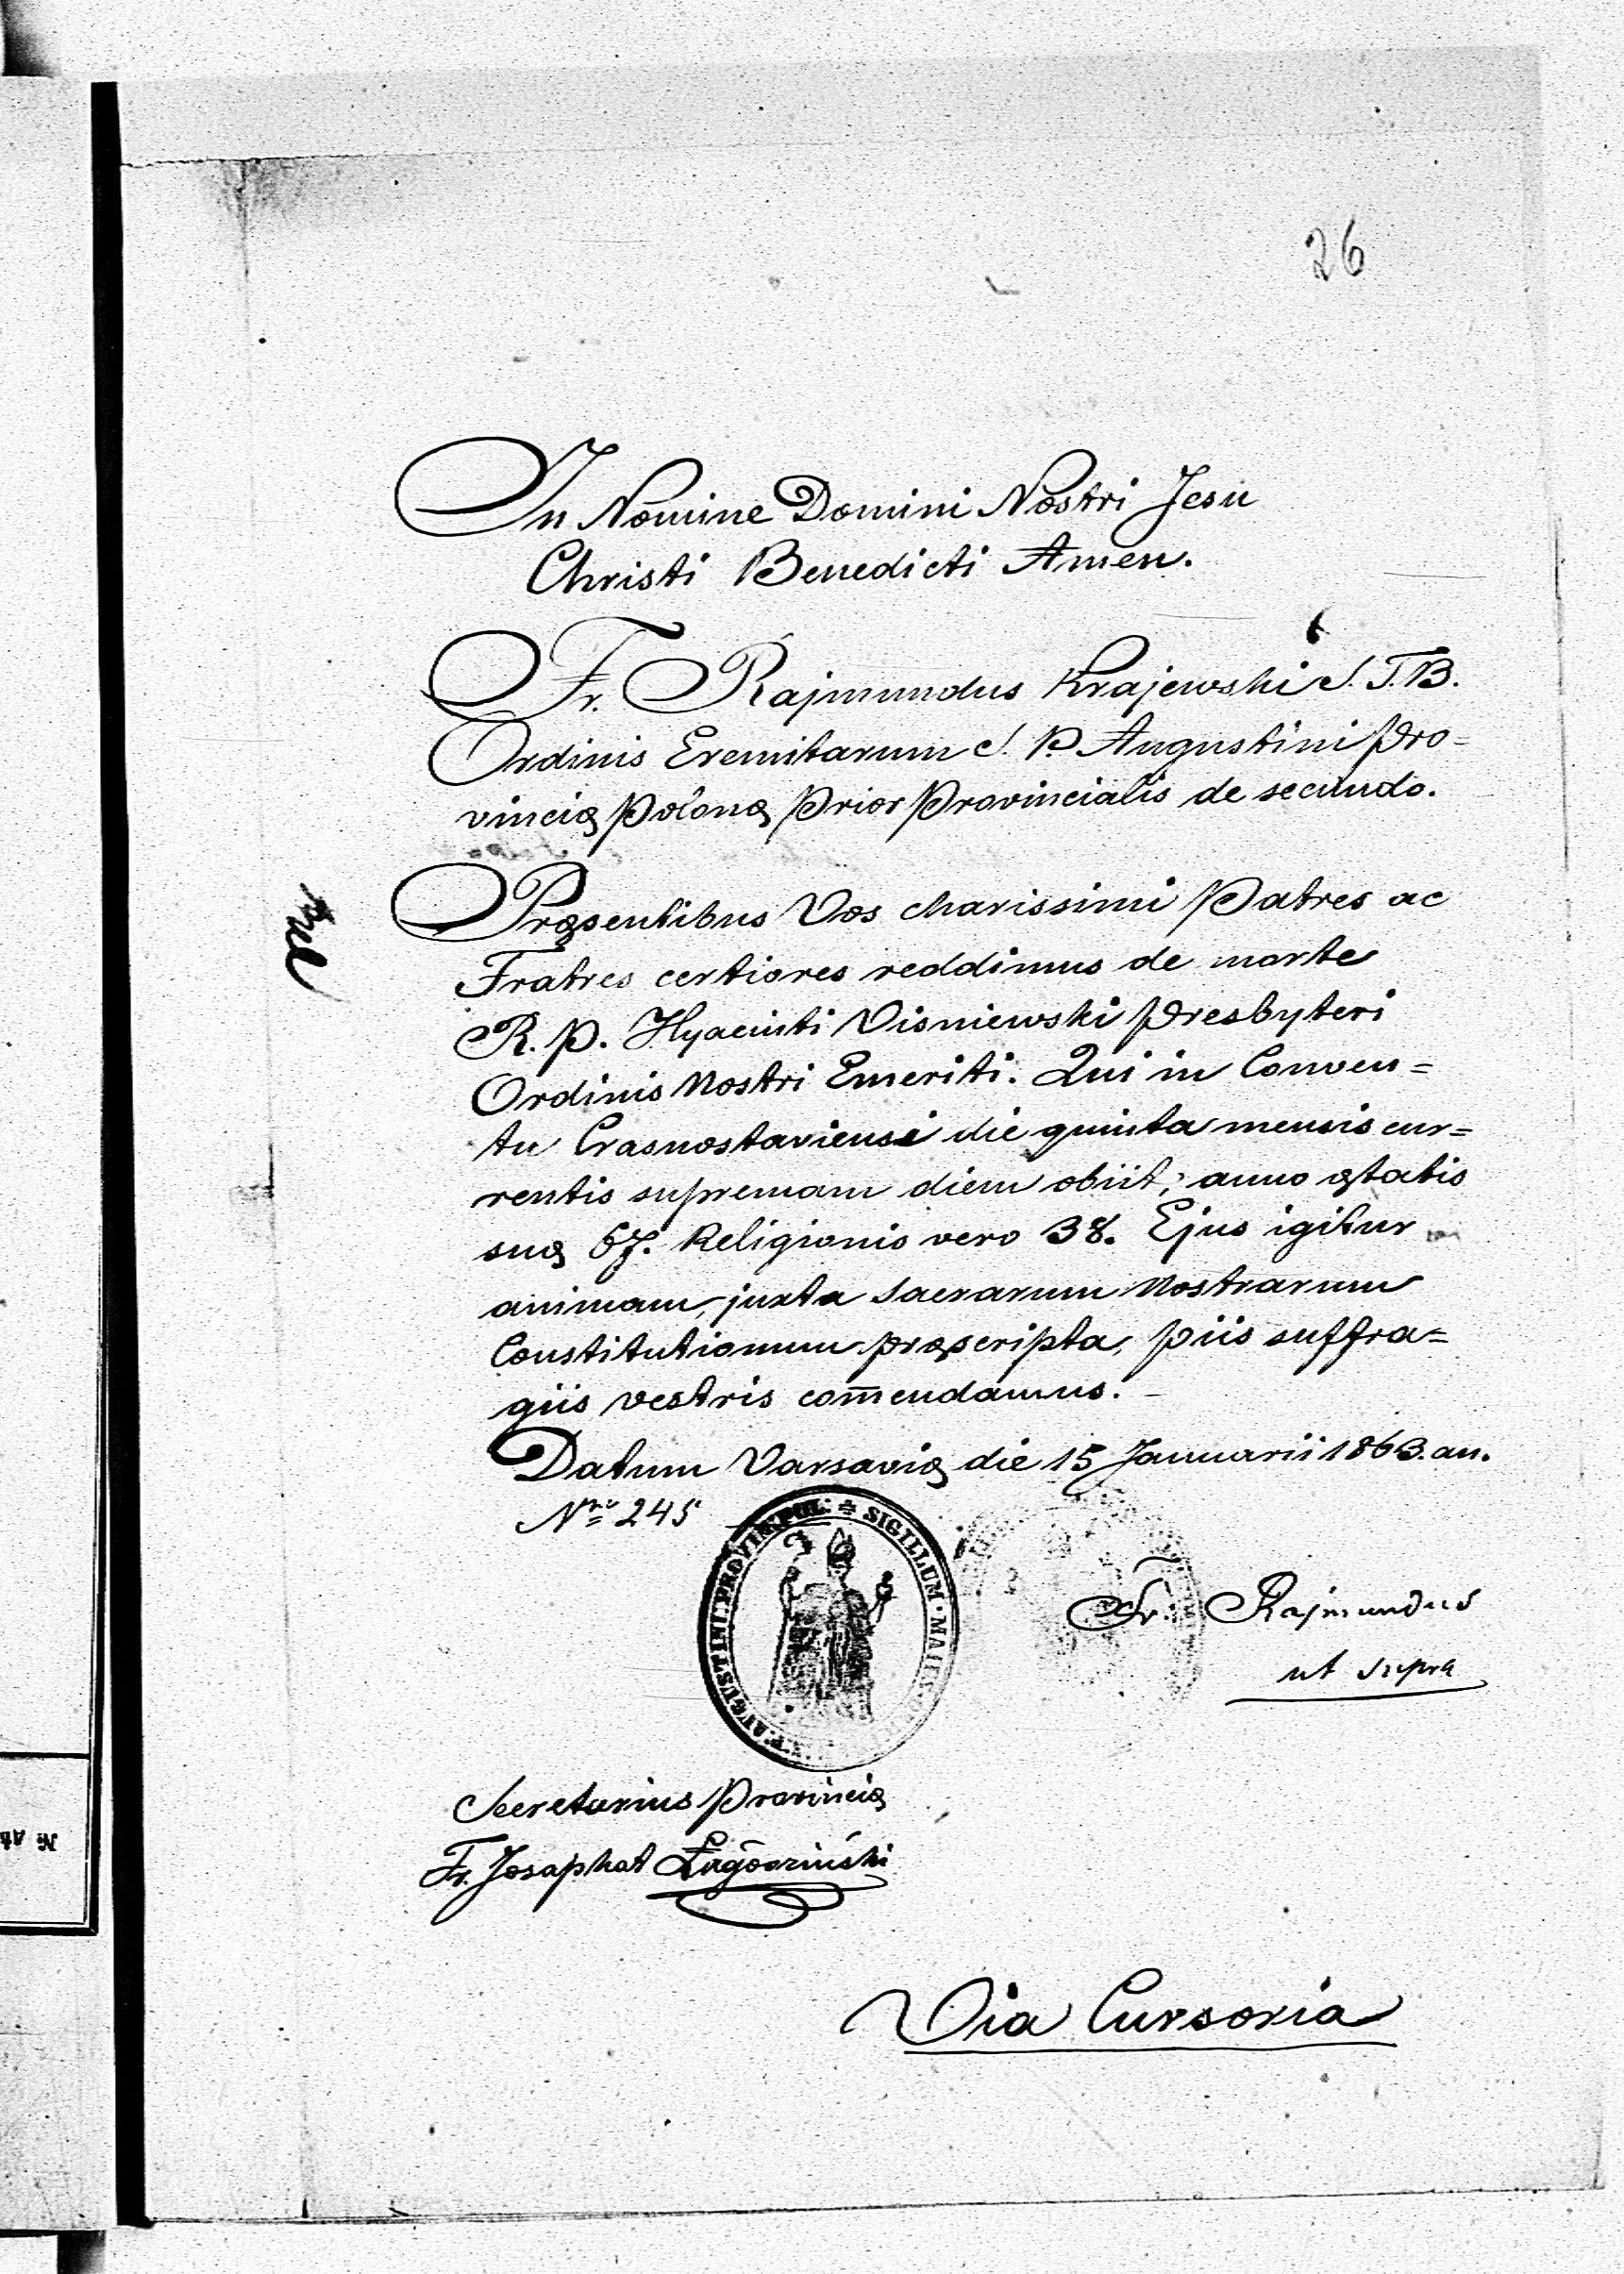 26
In Nomine Domini Nostri Jesu
Christi Benedicti Amen.
Fr. Rajmundus Krajewski S. T. B.
Ordinis Eremitarum S. P. Augustini Pro=
vincię Polonę Prior Provincialis de secundo.
Pręsentibus Vos charissimi Patres ac
Fratres certiores reddimus de morte
R. P. Hyacinti Visniewski Presbyteri
Ordinis Nostri Emeriti. Qui in Conven=
tu Crasnostaviensi die quinta mensis cur=
rentis supremam diem obiit; anno ętatis
suę 67. Religionis vero 38. Ejus igitur
animam, juxta Sacrarum Nostrarum
Constitutionum pręscripta, piis suffra=
giis vestris com̄endamus.
Datum Varsavię die 15 Januarii 1863. an.
Nro 245
SIGILLUM · MAIUS
AUGUSTINI · PROVIN · POL:
Fr. Rajmundus
ut supra
Secretarius Provincię
Fr. Josaphat
Via Cursoria